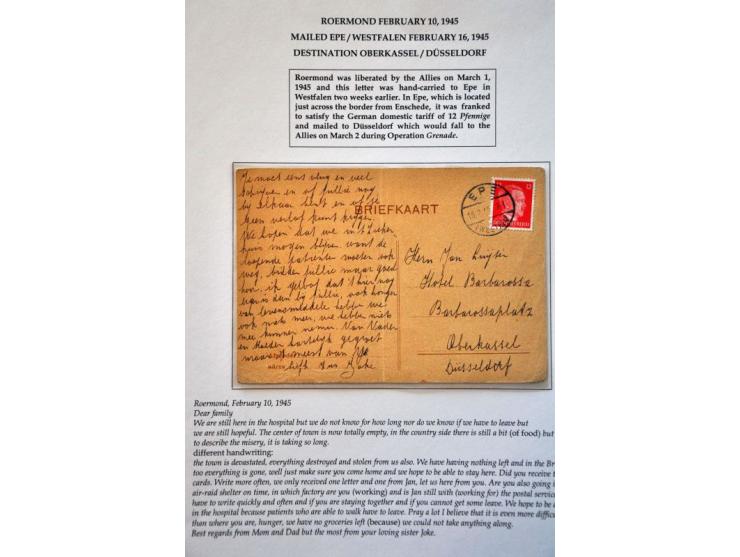 ROERMOND FEBRUARY 10, 1945
MAILED EPE / WESTFALEN FEBRUARY 16, 1945
DESTINATION OBERKASSEL / DÜSSELDORF
Roermond was liberated by the Allies on March 1,
1945 and this letter was hand-carried to Epe in
Westfalen two weeks earlier. In Epe, which is located
just across the border from Enschede, it was franked
to satisfy the German domestic tariff of 12 Pfennige
and mailed to Düsseldorf which would fall to the
Allies on March 2 during Operation Grenade.
Je moet eens vlug en veel
schrijven en of jullie nog
bij elkaar bent en of je
geen verlof kunt krijgen.
We hopen dat we in 't zieken-
huis mogen blijven want de
loopende patienten moeten ook
weg, bidden jullie maar goed
hoor, ik geloof dat 't hier nog
erger is dan bij jullie, ook honger
van levensmiddelen hebben we
ook niets meer, we hebben niets
mee kunnen nemen. Van Vader
en Moeder hartelijk gegroet
maar 't meest van je
liefh. zus Joke
BRIEFKAART
EPE
(WESTF)
12
Herrn Jan
Hotel Barbarossa
Barbarossaplatz
Oberkassel
Düsseldorf
Roermond, February 10, 1945
Dear family
We are still here in the hospital but we do not know for how long nor do we know if we have to leave but
we are still hopeful. The center of town is now totally empty, in the country side there is still a bit (of food) but
to describe the misery, it is taking so long.
different handwriting:
the town is devastated, everything destroyed and stolen from us also. We have having nothing left and in the Br
too everything is gone, well just make sure you come home and we hope to be able to stay here. Did you receive t
cards. Write more often, we only received one letter and one from Jan, let us here from you. Are you also going i
air-raid shelter on time, in which factory are you (working) and is Jan still with (working for) the postal servic
have to write quickly and often and if you are staying together and if you cannot get some leave. We hope to be
in the hospital because patients who are able to walk have to leave. Pray a lot I believe that it is even more diffic
than where you are, hunger, we have no groceries left (because) we could not take anything along.
Best regards from Mom and Dad but the most from your loving sister Joke.